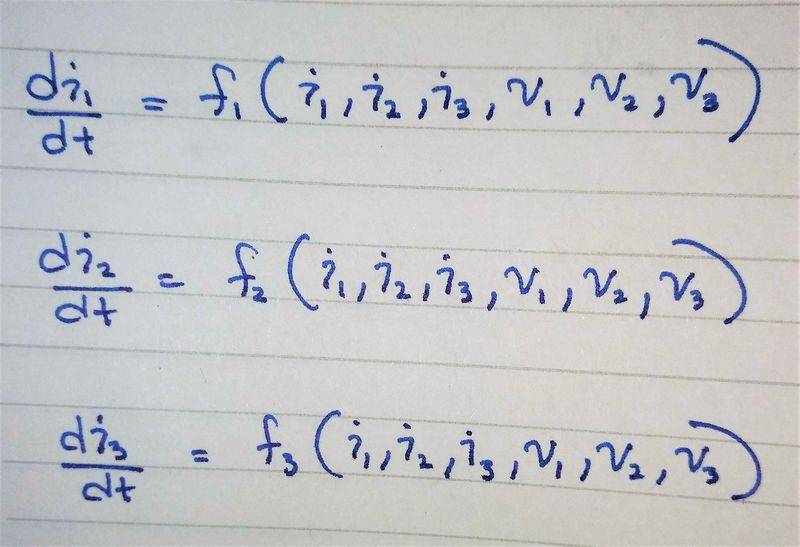 di₁/dt = f₁(i₁, i₂, i₃, v₁, v₂, v₃)
di₂/dt = f₂(i₁, i₂, i₃, v₁, v₂, v₃)
di₃/dt = f₃(i₁, i₂, i₃, v₁, v₂, v₃)